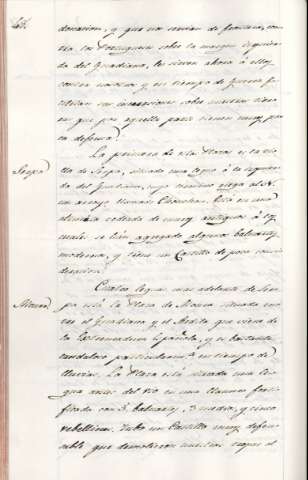 donacion, y que nos servian de frontera con-
tra los Portugueses sobre la margen izquier-
da del Guadiana, les sirven ahora á ellos
contra nosotros y en tiempo de guerra fa-
cilitan sus incursiones sobre nuestras tierras
en que por aquella parte tienen muy po-
ca defensa.
La primera de estas Plazas es la vi-
lla de Serpa, situada una legua á la izquierda
del Guadiana, cuyo termino llega al
un arroyo llamado Está en una
altura rodeada de muros antiguos á los
cuales se han agregado algunos baluartes
modernos, y tiene un Castillo de poca consi-
deracion.
Serpa
Cuatro leguas mas adelante de Ser-
pa está la Plaza de Moura situada en-
tre el Guadiana y el Ardila que viene de
la Extremadura Española, y es bastante
caudaloso particularmente en tiempo de
lluvias. La Plaza está situada una le-
gua antes del rio en una llanura forti-
ficada con baluartes, 2 medios, y cinco
rebellines. Tubo un Castillo muy defen-
sable que demolieron nuestras tropas el
Moura